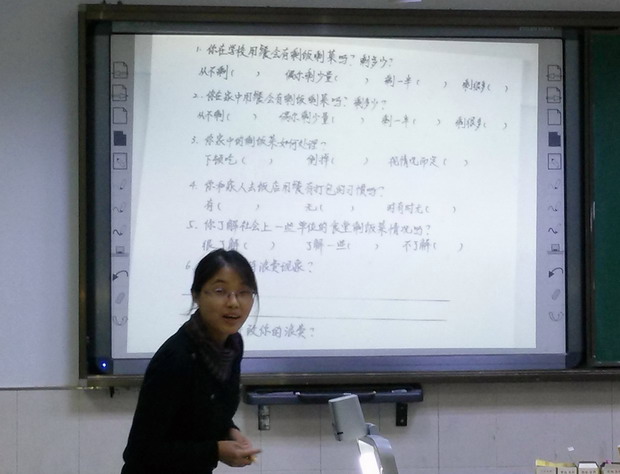 1. 你在学校用餐会有剩饭剩菜吗? 剩多少?
从不剩( ) 偶尔剩少量( ) 剩一半( ) 剩很多( )
2. 你在家中用餐会有剩饭剩菜吗? 剩多少?
从不剩( ) 偶尔剩少量( ) 剩一半( ) 剩很多( )
3. 你家中的剩饭菜如何处理?
下顿吃( ) 倒掉( ) 视情况而定( )
4. 你和家人去饭店用餐有打包的习惯吗?
有( ) 无( ) 时有时无( )
5. 你了解社会上一些单位的食堂剩饭菜情况吗?
很了解( ) 了解一些( ) 不了解( )
6 浪费现象?
你的浪费?